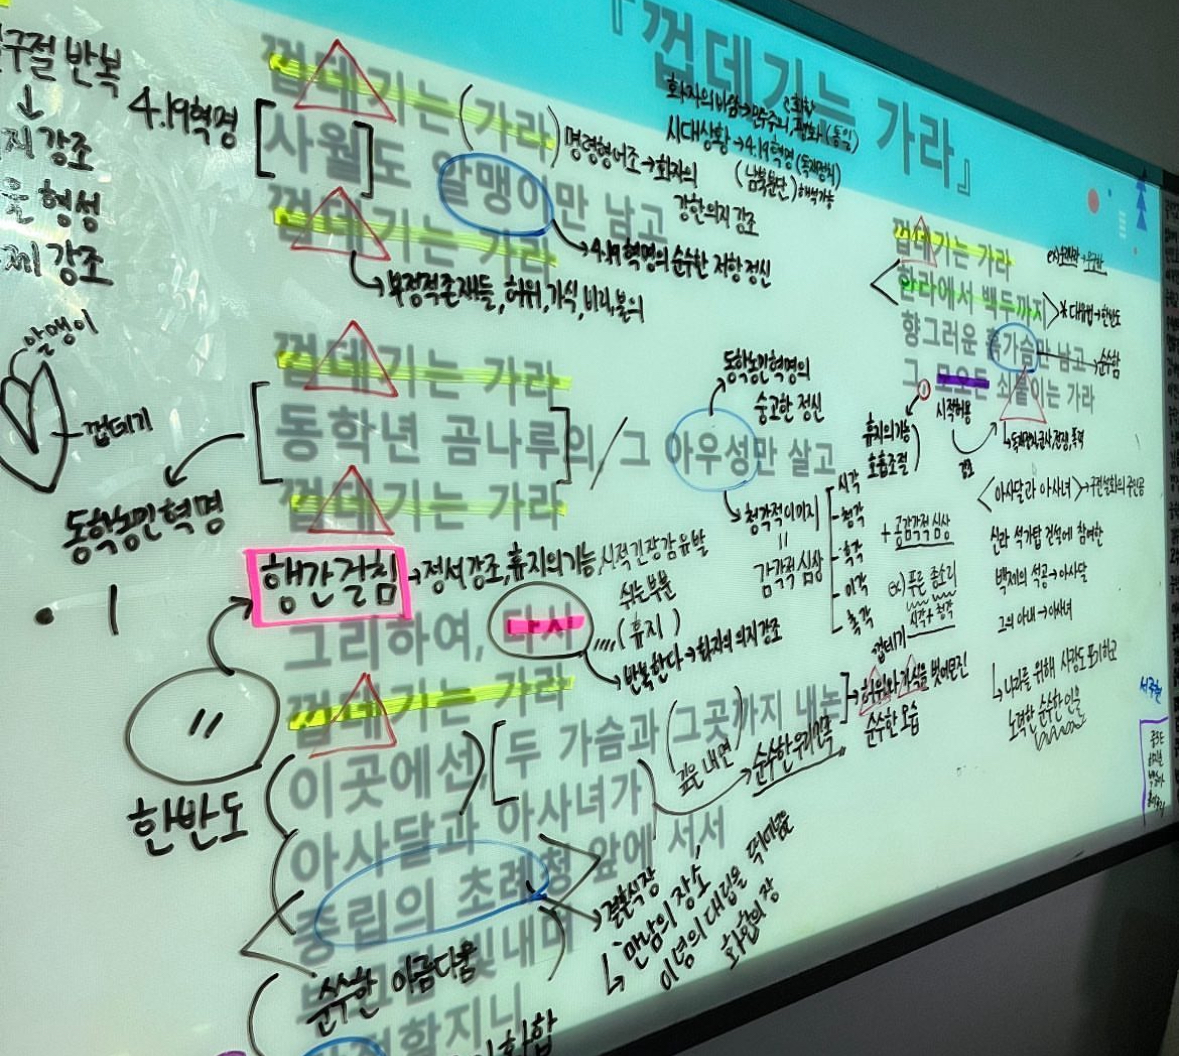 『껍데기는 가라』
구절 반복
↓
강조
형성
강조
4.19혁명
껍데기는 가라
사월도 알맹이만 남고
껍데기는 가라
명령형어조→화자의
강한의지 강조
시대상황→4.19혁명
(남북분단) 해석가능
→4.19혁명의 순수한 저항 정신
→부정적존재들, 허위, 가식, 비리, 불의
알맹이
껍데기
껍데기는 가라
동학년 곰나루의 / 그 아우성만 살고
껍데기는 가라
동학농민혁명
동학농민혁명의
숭고한 정신
→청각적이미지
=
감각적 심상
시각
청각
후각
미각
촉각
+ 공감각적 심상
ex) 푸른 종소리
시각+청각
행간걸침
→정서강조, 휴지의기능, 시적긴장감유발
쉬는부분
(휴지)
그리하여, 다시
→반복한다→화자의 의지강조
껍데기는 가라
이곳에선, 두 가슴과 그곳까지 내논
아사달과 아사녀가
중립의 초례청 앞에 서서
빛내며
할지니
한반도
깊은 내면
→순수한 우리민족
껍데기
→허위와 가식을 벗어던진
순수한 모습
→결혼식장
↳만남의 장소,
이념의 대립을 뛰어넘는
화합의 장
순수한 아름다움
화합
껍데기는 가라
한라에서 백두까지
향그러운 흙가슴만 남고
그, 모오든 쇠붙이는 가라
*대유법→한반도
→순수함
시적허용
휴지의기능
호흡조절
<아사달과 아사녀>→구전설화의 주인공
신라 석가탑 건설에 참여한
백제의 석공→아사달
그의 아내→아사녀
↳나라를 위해 사랑도 포기하고
노력한 순수한 인물